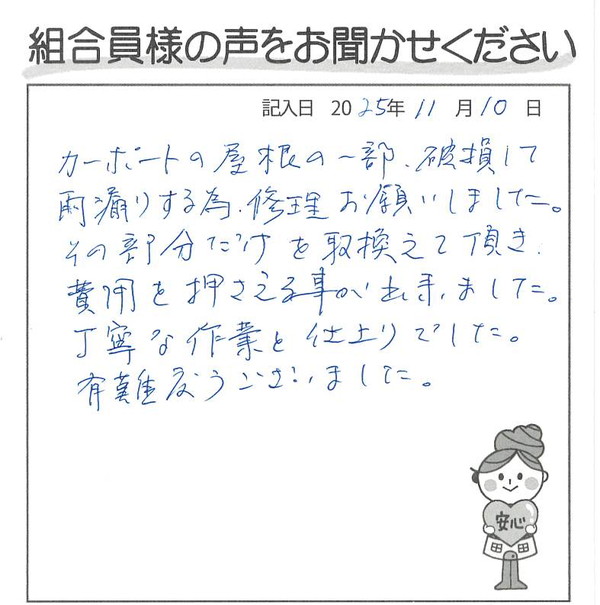 組合員様の声をお聞かせください
記入日 2025年 11月 10日
カーポートの屋根の一部、破損して
雨漏りする為、修理お願いしました。
その部分だけを取換えて頂き、
費用を押さえる事が出来ました。
丁寧な作業と仕上りでした。
有難度うございました。
安心